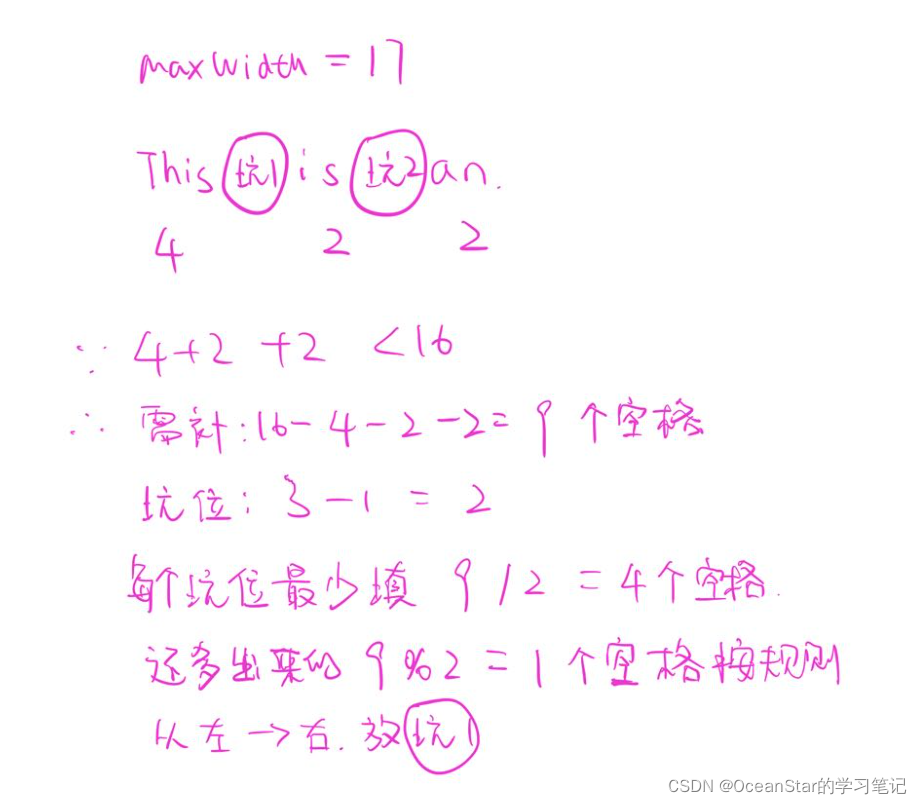 maxWidth = 17
This 坑1 is 坑2 an.
4 2 2
∵ 4+2 +2 <16
∴ 需计:16-4-2-2= 9 个空格
坑位: 3-1 = 2
每个坑位最少填 9 / 2 = 4个空格.
还多出来的 9 % 2 = 1 个空格按规则
从左→右. 放坑1
CSDN @OceanStar的学习笔记